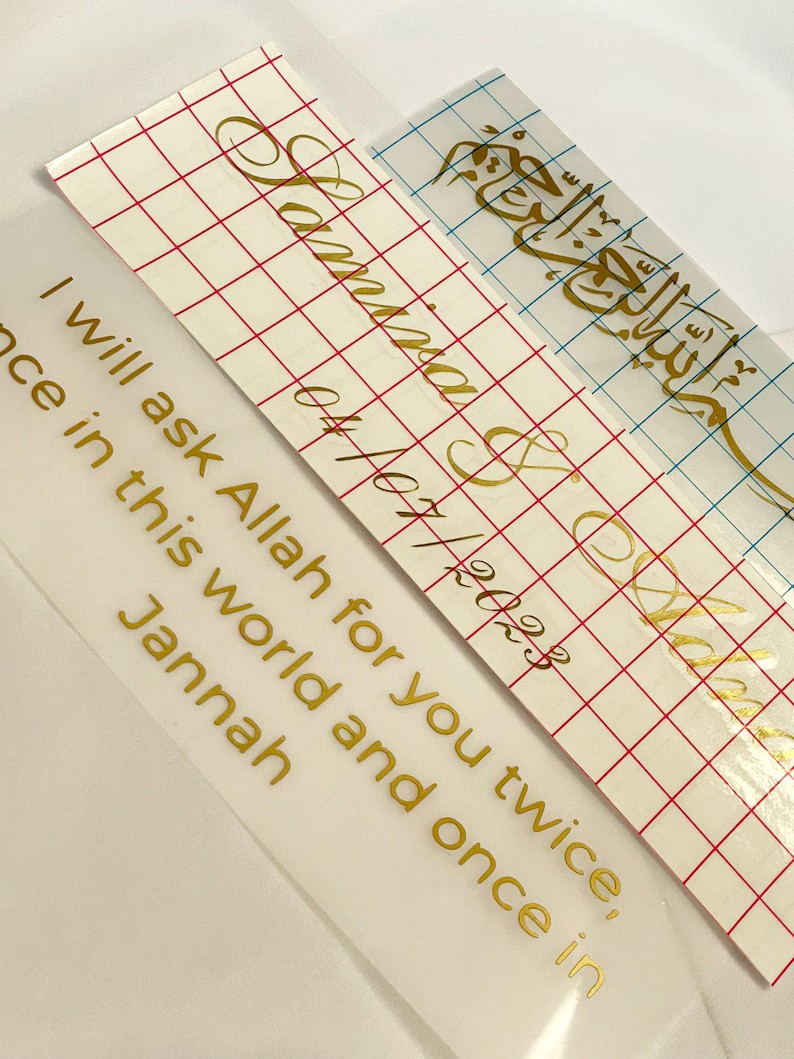 بسم الله الرحمن الرحيم
Samira & Adn
04/07/2023
I will ask Allah for you twice,
nce in this world and once in
Jannah